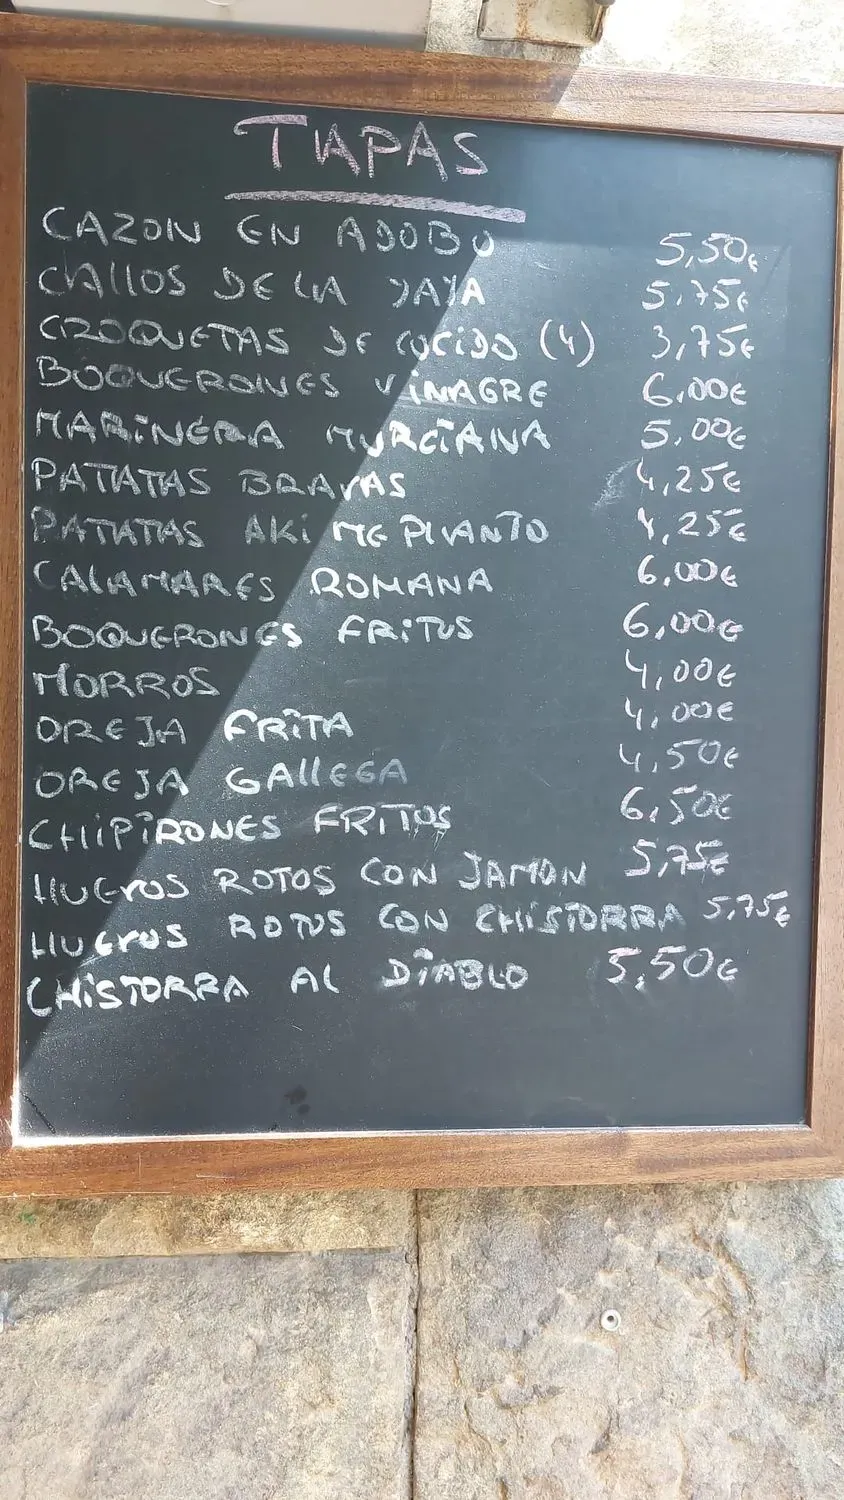 TAPAS
CAZON EN ADOBO 5,50€
CALLOS DE LA YAYA 5,75€
CROQUETAS DE COCIDO (4) 3,75€
BOQUERONES VINAGRE 6,00€
MARINERA MURCIANA 5,00€
PATATAS BRAVAS 4,25€
PATATAS AKI ME PLANTO 4,25€
CALAMARES ROMANA 6,00€
BOQUERONES FRITOS 6,00€
MORROS 4,00€
OREJA FRITA 4,00€
OREJA GALLEGA 4,50€
CHIPIRONES FRITOS 6,50€
HUEVOS ROTOS CON JAMON 5,75€
HUEVOS ROTOS CON CHISTORRA 5,75€
CHISTORRA AL DIABLO 5,50€